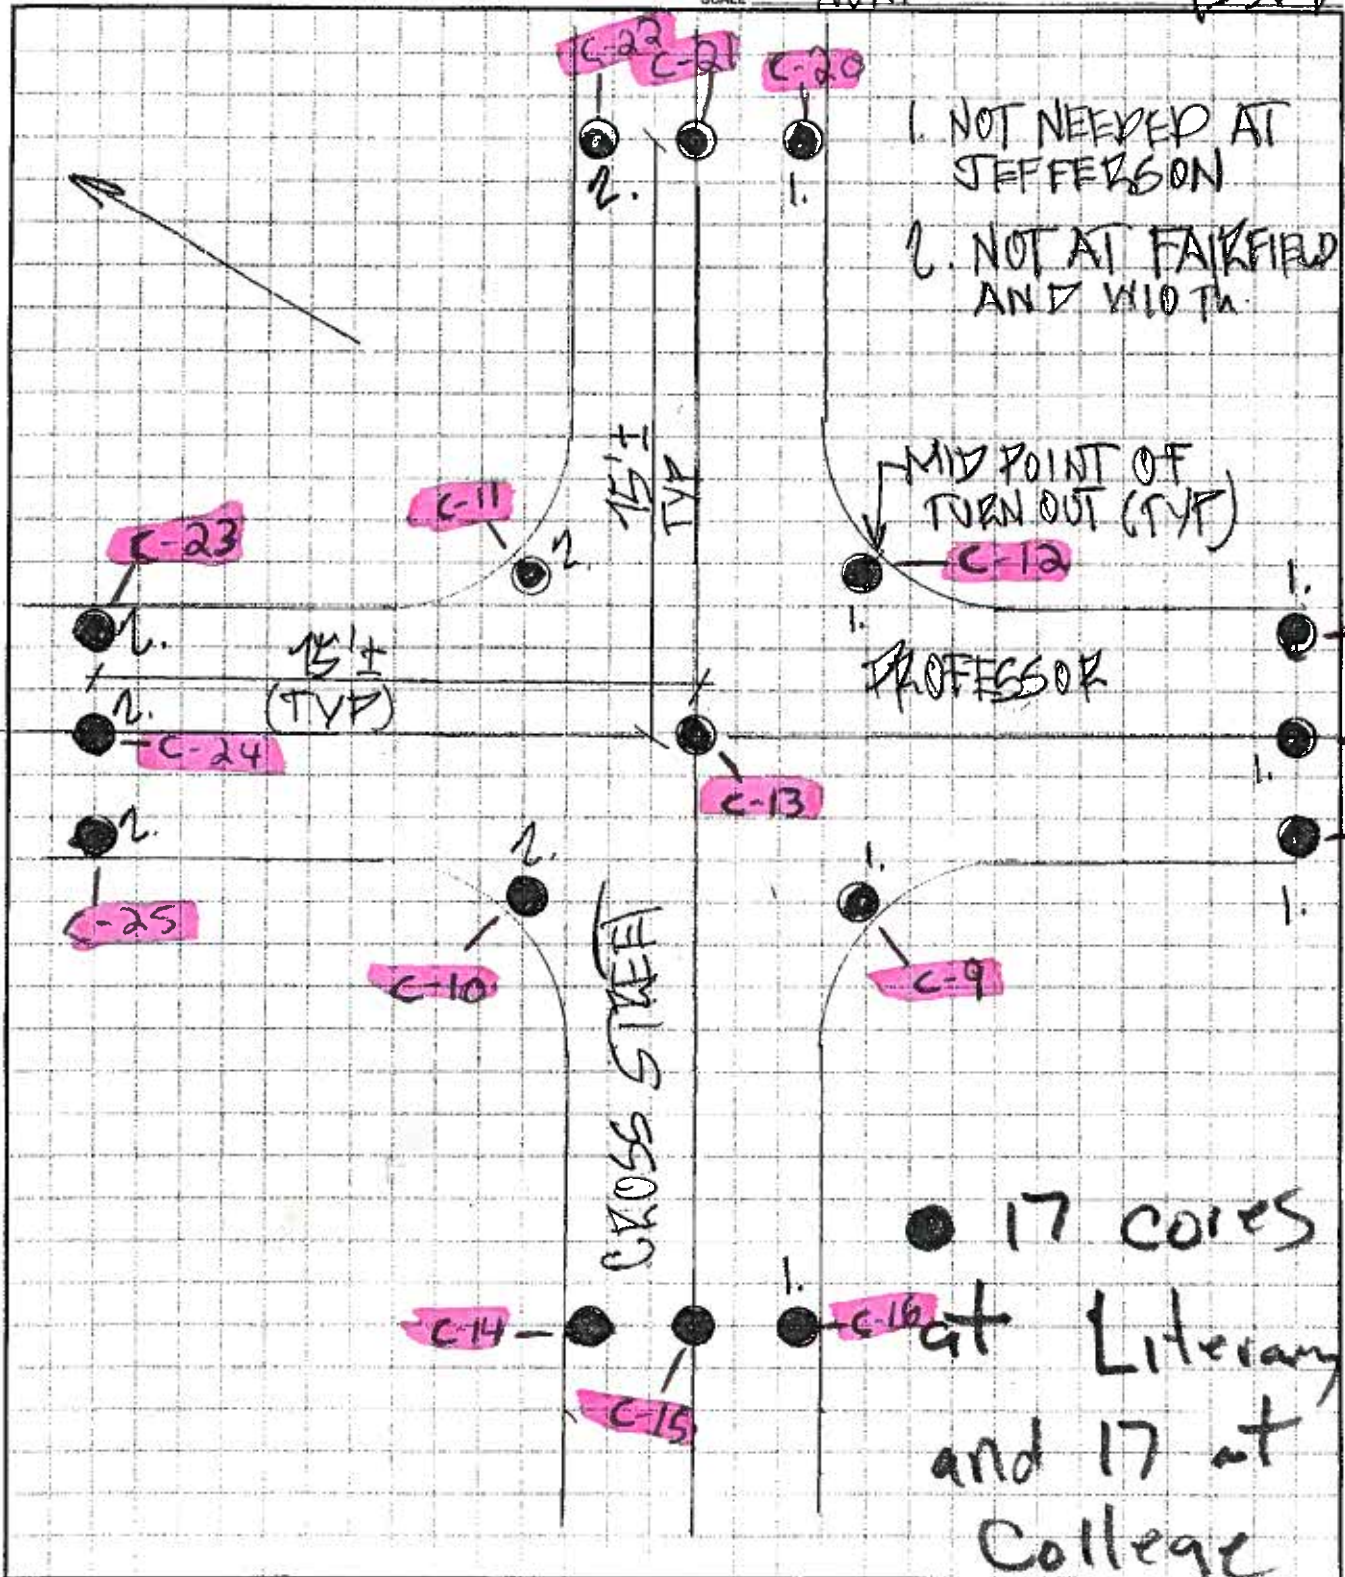 C-22
C-21
C-20
1. NOT NEEDED AT
JEFFERSON
2. NOT AT FAIRFIELD
AND WIDTH
2.
1.
15'±
TYP
MID POINT OF
TURN OUT (TYP)
C-11
2.
C-12
1.
C-23
2.
1.
15'±
(TYP)
PROFESSOR
2.
C-24
C-13
1.
2.
C-25
2.
C-10
1.
C-9
1.
CROSS STREET
17 cores
at Literary
and 17 at
College
C-14
1.
C-16
C-15